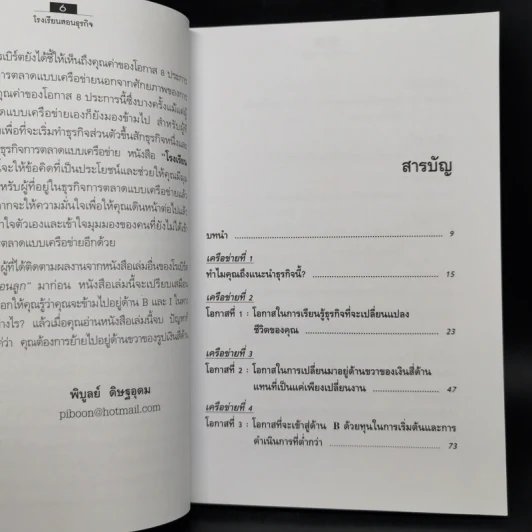 6
โรงเรียนสอนธุรกิจ
เบิร์ตยังได้ชี้ให้เห็นถึงคุณค่าของโอกาส 8 ประการ
ารตลาดแบบเครือข่ายนอกจากศักยภาพของการ
คุณค่าของโอกาส 8 ประการนี้ซึ่งบางครั้งแม้แต่ผู้
ดแบบเครือข่ายเองก็ยังมองข้ามไป สำหรับผู้ที่
เพื่อที่จะเริ่มทำธุรกิจส่วนตัวขึ้นสักธุรกิจหนึ่งและ
ธุรกิจการตลาดแบบเครือข่าย หนังสือ "โรงเรียน
จะให้ข้อคิดที่เป็นประโยชน์และช่วยให้คุณมีมุม
หรับผู้ที่อยู่ในธุรกิจการตลาดแบบเครือข่ายแล้ว
ากจะให้ความมั่นใจเพื่อให้คุณเดินหน้าต่อไปแล้ว
าใจตัวเองและเข้าใจมุมมองของคนที่ยังไม่ได้เข้า
ตลาดแบบเครือข่ายอีกด้วย
ผู้ที่ได้ติดตามผลงานจากหนังสือเล่มอื่นของโรเบิร์ต
อนลูก" มาก่อน หนังสือเล่มนี้จะเปรียบเสมือน
อกให้คุณรู้ว่าคุณจะข้ามไปอยู่ด้าน B และ I
ย่างไร? แล้วเมื่อคุณอ่านหนังสือเล่มนี้จบ
ว่า คุณต้องการย้ายไปอยู่ด้านขวาของรูปเงินสี่ด้าน
พิบูลย์ ดิษฐอุดม
piboon@hotmail.com
สารบัญ
บทนำ 9
เครือข่ายที่ 1
ทำไมคุณถึงแนะนำธุรกิจนี้? 15
เครือข่ายที่ 2
โอกาสที่ 1 : โอกาสในการเรียนรู้ธุรกิจที่จะเปลี่ยนแปลง
ชีวิตของคุณ 23
เครือข่ายที่ 3
โอกาสที่ 2 : โอกาสในการเปลี่ยนมาอยู่ด้านขวาของเงินสี่ด้าน
แทนที่เป็นแค่เพียงเปลี่ยนงาน 47
เครือข่ายที่ 4
โอกาสที่ 3 : โอกาสที่จะเข้าสู่ด้าน B ด้วยทุนในการเริ่มต้นและการ
ดำเนินการที่ต่ำกว่า 73